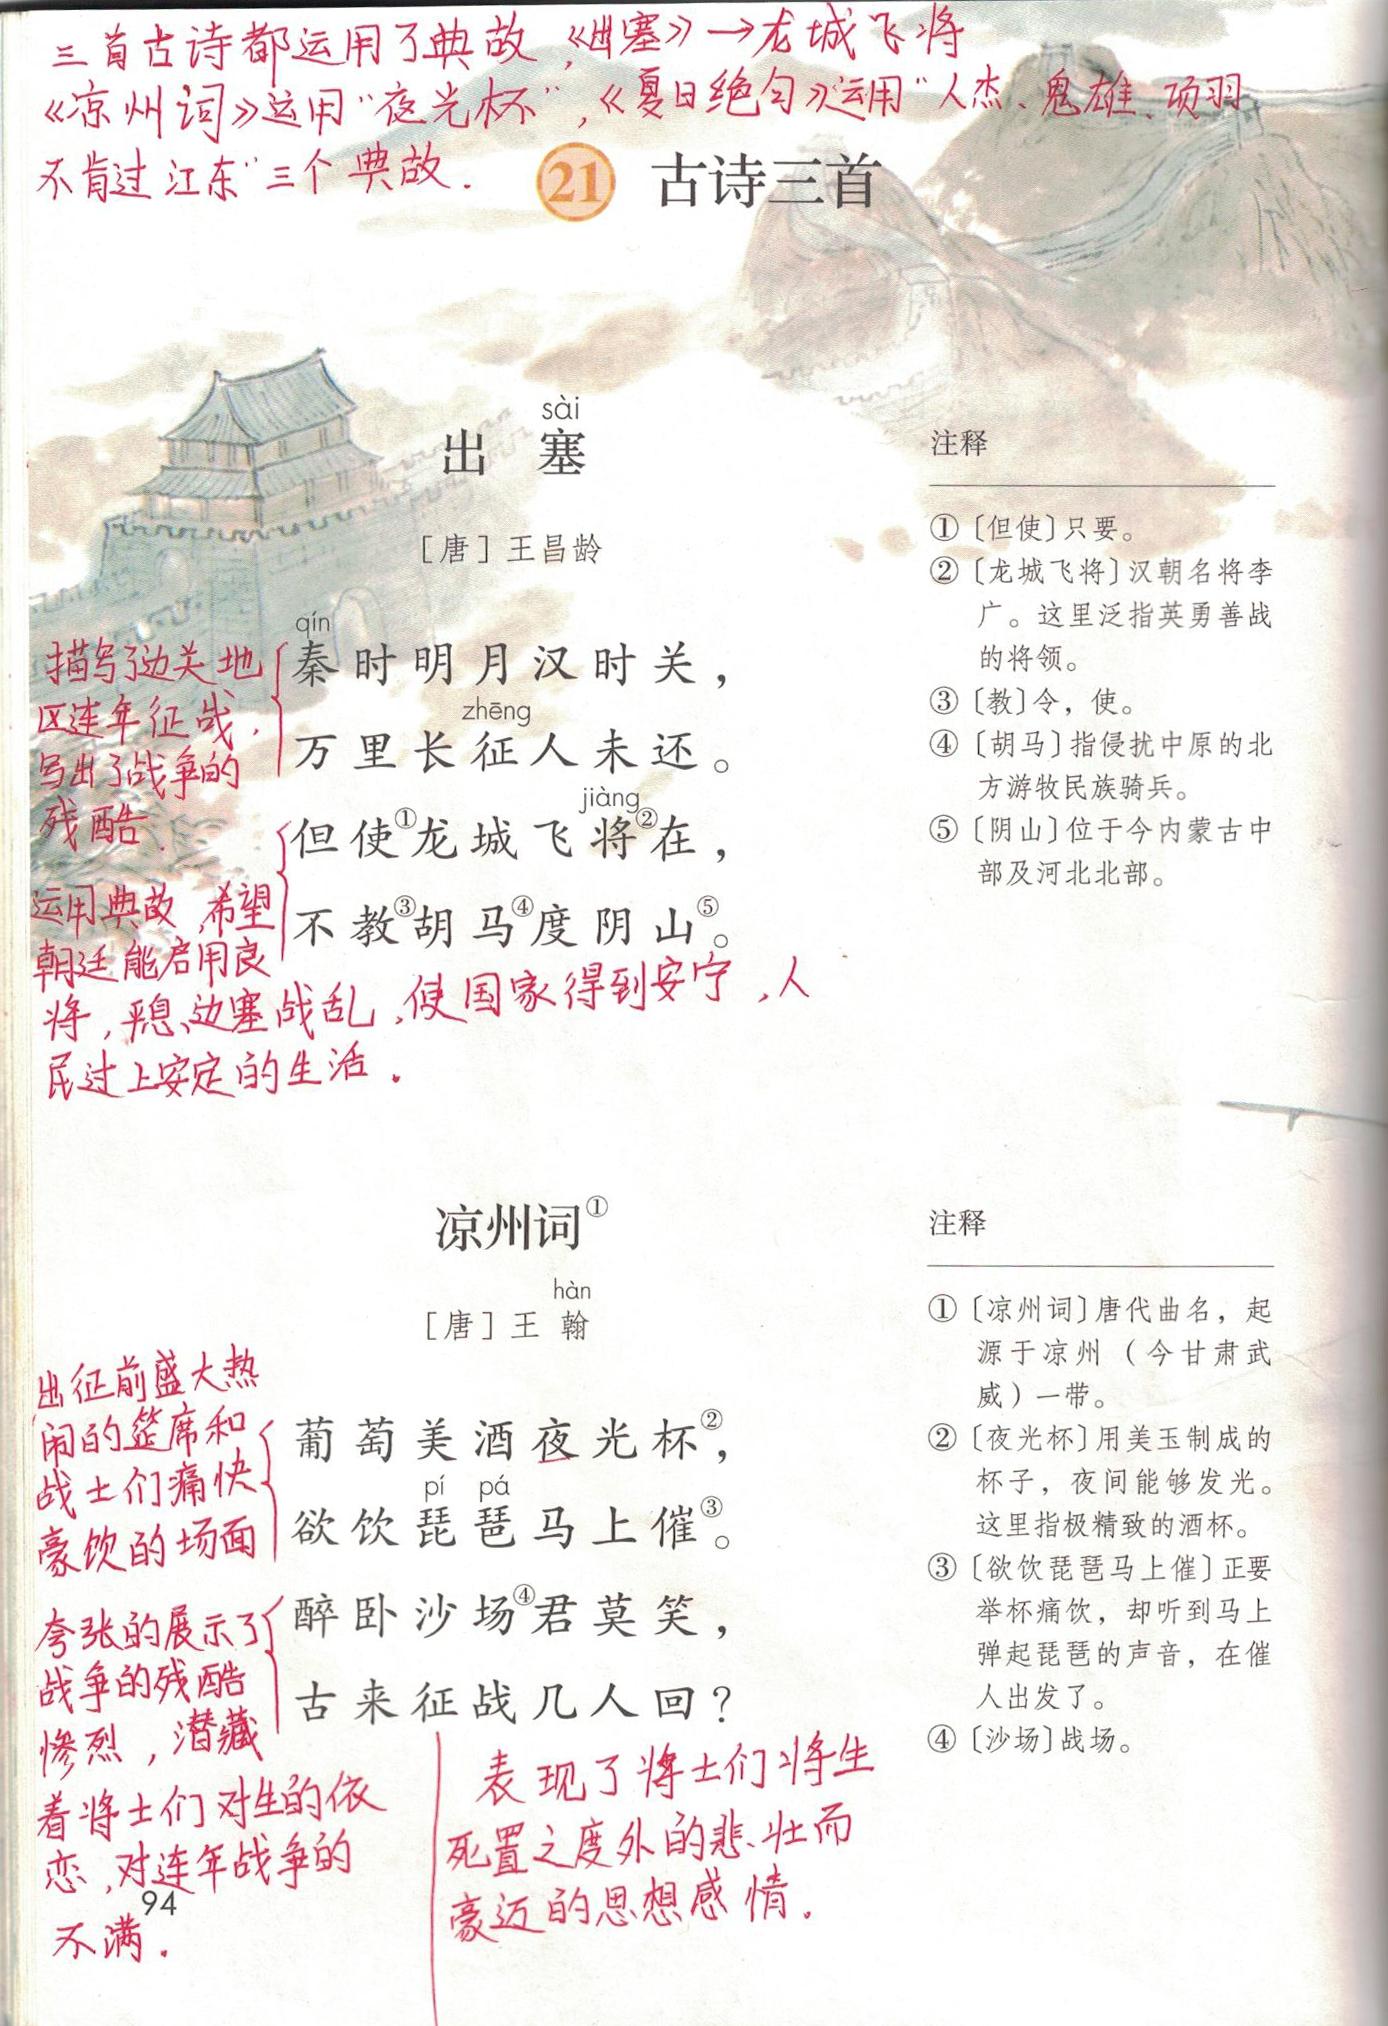 三首古诗都运用了典故,《出塞》→龙城飞将
《凉州词》运用"夜光杯",《夏日绝句》运用"人杰、鬼雄、项羽
不肯过江东"三个典故.
21 古诗三首
sài
出 塞
[唐] 王昌龄
qín
秦时明月汉时关，
zhēng
万里长征人未还。
jiàng
但使①龙城飞将②在，
不教③胡马④度阴山⑤。
描写了边关地
区连年征战,
写出了战争的
残酷.
运用典故,希望
朝廷能启用良
将,平息边塞战乱,使国家得到安宁,人
民过上安定的生活.
注释
①〔但使〕只要。
②〔龙城飞将〕汉朝名将李
广。这里泛指英勇善战
的将领。
③〔教〕令，使。
④〔胡马〕指侵扰中原的北
方游牧民族骑兵。
⑤〔阴山〕位于今内蒙古中
部及河北北部。
凉州词①
hàn
[唐] 王 翰
葡萄美酒夜光杯②，
pí pá
欲饮琵琶马上催③。
醉卧沙场④君莫笑，
古来征战几人回？
出征前盛大热
闹的筵席和
战士们痛快
豪饮的场面
夸张的展示了
战争的残酷
惨烈,潜藏
着将士们对生的依
恋,对连年战争的
不满.
表现了将士们将生
死置之度外的悲壮而
豪迈的思想感情.
注释
①〔凉州词〕唐代曲名，起
源于凉州（今甘肃武
威）一带。
②〔夜光杯〕用美玉制成的
杯子，夜间能够发光。
这里指极精致的酒杯。
③〔欲饮琵琶马上催〕正要
举杯痛饮，却听到马上
弹起琵琶的声音，在催
人出发了。
④〔沙场〕战场。
94